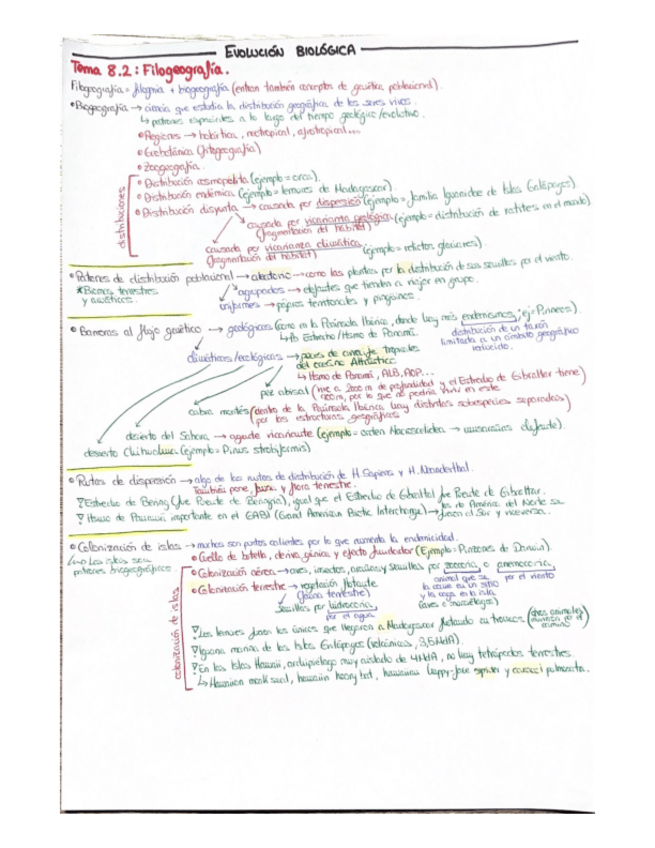 EVOLUCIÓN BIOLÓGICA
Tema 8.2: Filogeografía.
Filogeografía = filogenia + biogeografía (entran también conceptos de genética poblacional).
•Biogeografía → ciencia que estudia la distribución geográfica de los seres vivos.
↳ patrones espaciales a lo largo del tiempo geológico/evolutivo.
•Regiones → holártica, neotropical, afrotropical...
•Geobotánica (fitogeografía)
•Zoogeografía.
distribuciones
•Distribución cosmopolita (ejemplo = orca).
•Distribución endémica (ejemplo = lemures de Madagascar).
•Distribución disyunta → causada por dispersión (ejemplo = familia Iguanidae de Islas Galápagos).
causada por vicarianza geológica (ejemplo = distribución de ratites en el mundo)
(fragmentación del hábitat)
causada por vicarianza climática (ejemplo = relictos glaciares).
(fragmentación del hábitat)
•Patrones de distribución poblacional → aleatorio → como las plantas por la distribución de sus semillas por el viento.
*Biomas terrestres y acuáticos.
agrupados → elefantes que tienden a viajar en grupo.
uniformes → pájaros territoriales y pingüinos.
•Barreras al flujo genético → geológicas (como en la Península Ibérica, donde hay más endemismos; ej = Pirineos).
↳ Estrecho/Istmo de Panamá.
distribución de un taxón limitada a un ámbito geográfico reducido.
climáticas/ecológicas → peces de arrecife tropicales del océano Atlántico
↳ Istmo de Panamá, ALB, AOP...
pez abisal (vive a 2000 m de profundidad y el Estrecho de Gibraltar tiene
m, por lo que no podría vivir en este)
cabra montés (dentro de la Península Ibérica hay distintas subespecies separadas
por las estructuras geográficas)
desierto del Sahara → agente vicariante (ejemplo = orden Macroscelidea → musarañas elefante).
desierto Chihuahua (ejemplo = Pinus strobiformis)
•Rutas de dispersión → algo de las rutas de distribución de H. Sapiens y H. Neanderthal.
También pone fauna y flora terrestre.
Estrecho de Bering (fue Puente de Beringia), igual que el Estrecho de Gibraltar fue Puente de Gibraltar.
Istmo de Panamá importante en el GABI (Grand American Biotic Interchange) → los de América del Norte se
fueron al Sur y viceversa.
•Colonización de islas → muchas son puntos calientes por lo que aumenta la endemicidad.
↳ No las islas son patrones biogeográficos.
•Cuello de botella, deriva génica y efecto fundador (Ejemplo = Pinzones de Darwin).
colonización de islas
•Colonización aérea → aves, insectos, arañas y semillas por zoocoria, o anemocoria,
animal que se la come en un sitio y la caga en la isla (aves o murciélagos)
por el viento
•Colonización terrestre → vegetación flotante
(fauna terrestre)
semillas por hidrocoria,
por el agua
Los lemures fueron los únicos que llegaron a Madagascar flotando en troncos (otros animales murieron por el camino)
Iguana marina de las Islas Galápagos (volcánicas, 3,5MdA).
En las Islas Hawaii, archipiélago muy aislado de 4MdA, no hay tetrápodos terrestres
↳ Hawaiian monk seal, hawaiian hoary bat, hawaiian happy-face spider y caracol pulmonata.